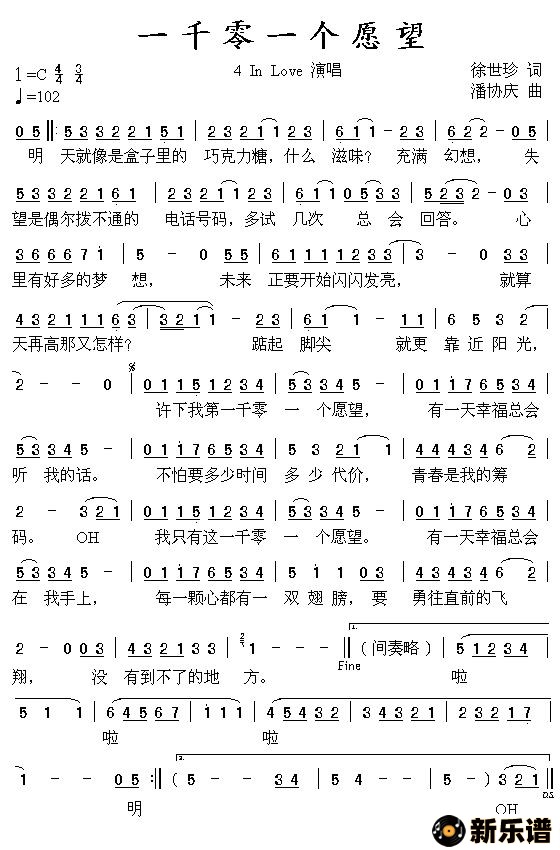 一千零一个愿望
1=C 4/4 3/4 4 In Love 演唱 徐世珍 词
♩=102 潘协庆 曲
0 5 ‖: 5 3 3 2 2 1 5 1 | 2 3 2 3 2 1 2 3 | 6 1 1 - - | 2 3 2 - 0 5 |
明 天就像是盒子里的 巧克力糖，什么 滋味？ 充满 幻想， 失
5 3 3 2 2 1 6 1 | 2 3 2 1 2 1 2 3 | 6 1 1 5 1 1 | 5 2 3 2 - 0 3 |
望是偶尔拨不通的 电话号码，多试 几次 总 会 回答。 心
3 6 6 6 7 1 | 5 - 0 5 5 | 6 1 1 1 1 2 3 3 | 3 - 0 3 3 |
里有好多的梦 想， 未来 正要开始闪闪发亮， 就算
4 3 2 1 1 1 6 3 | 3 3 2 1 1 - | 6 1 1 - 1 1 | 6 5 3 2 |
天再高那又怎样？ 踮起 脚尖 就更 靠 近 阳 光，
2 - - 0 | 0 1 1 5 1 2 3 4 | 5 3 3 4 5 - | 0 1 1 7 6 5 3 4 |
许下我第一千零 一 个愿望， 有一天幸福总会
5 3 3 4 5 - | 0 1 1 7 6 5 3 4 | 5 5 3 2 1 1 | 4 4 4 3 4 6 |
听 我的话。 不怕要多少时间 多 少 代价， 青春是我的筹
2 - 3 2 1 | 0 1 1 5 1 2 3 4 | 5 3 3 4 5 - | 0 1 1 7 6 5 3 4 |
码。 OH 我只有这一千零 一 个愿望。 有一天幸福总会
5 3 3 4 5 - | 0 1 1 7 6 5 3 4 | 5 1 1 0 3 | 4 4 4 3 4 6 |
在 我手上， 每一颗心都有一 双 翅 膀， 要 勇往直前的飞
2 - 0 0 3 | 4 3 2 1 3 3 | 1 - - ‖ (间奏略) | 5 1 2 3 4 |
1.
Fine
翔， 没 有到不了的地 方。 啦
5 1 1 | 6 4 5 6 7 | 1 1 1 | 4 5 4 3 2 | 3 4 3 2 1 | 2 3 2 1 7 |
啦 啦
1 - - 0 5 :‖ ( 5 - - 3 4 | 5 - - 3 4 | 5 - - ) 3 2 1 ‖
2.
D.S.
明 OH
新乐谱